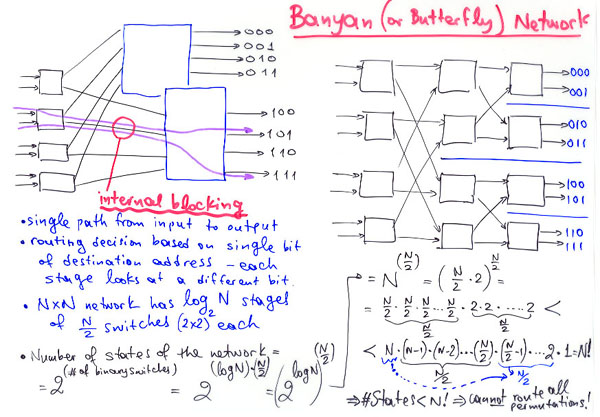 Banyan (or Butterfly) Network
000
001
010
011
100
101
110
111
internal blocking
• single path from input to output
• routing decision based on single bit
of destination address – each
stage looks at a different bit.
• N×N network has log₂N stages
of N/2 switches (2x2) each
• Number of states of the network =
= 2^(# of binary switches) = 2^((logN)·(N/2)) = (2^logN)^(N/2)
000
001
010
011
100
101
110
111
= N^(N/2) = (N/2 · 2)^(N/2) =
= N/2 · N/2 · N/2 ... N/2 · 2 · 2 ····· 2 <
N/2 N/2
< N · (N-1) · (N-2) ··· (N/2) · (N/2 -1) ··· 2 · 1 = N!
N/2 N/2
⇒ #States < N! ⇒ cannot route all
permutations!